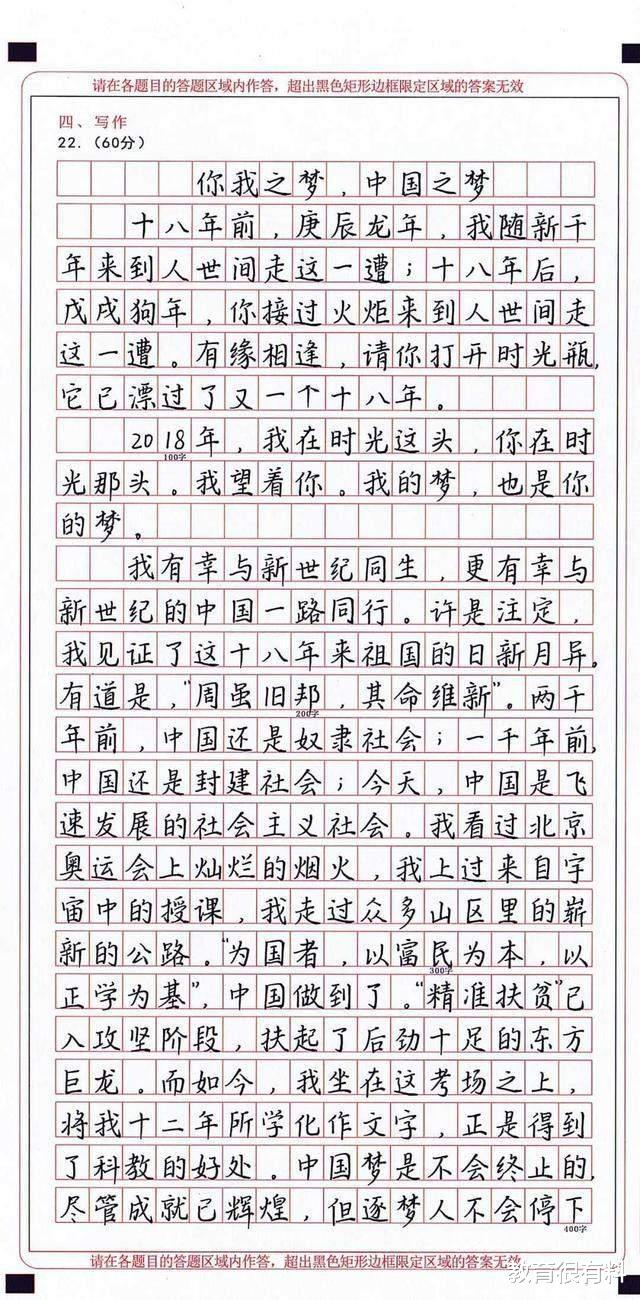 请在各题目的答题区域内作答，超出黑色矩形边框限定区域的答案无效
四、写作
22.（60分）
你我之梦，中国之梦
十八年前，庚辰龙年，我随新千
年来到人世间走这一遭；十八年后，
戊戌狗年，你接过火炬来到人世间走
这一遭。有缘相逢，请你打开时光瓶，
它已漂过了又一个十八年。
2018年，我在时光这头，你在时
100字
光那头。我望着你。我的梦，也是你
的梦。
我有幸与新世纪同生，更有幸与
新世纪的中国一路同行。许是注定，
我见证了这十八年来祖国的日新月异。
有道是，“周虽旧邦，其命维新”。两千
200字
年前，中国还是奴隶社会；一千年前，
中国还是封建社会；今天，中国是飞
速发展的社会主义社会。我看过北京
奥运会上灿烂的烟火，我上过来自宇
宙中的授课，我走过众多山区里的崭
新的公路。“为国者，以富民为本，以
300字
正学为基”，中国做到了。“精准扶贫”已
入攻坚阶段，扶起了后劲十足的东方
巨龙。而如今，我坐在这考场之上，
将我十二年所学化作文字，正是得到
了科教的好处。中国梦是不会终止的，
尽管成就已辉煌，但逐梦人不会停下
400字
请在各题目的答题区域内作答，超出黑色矩形边框限定区域的答案无效
教育很有料